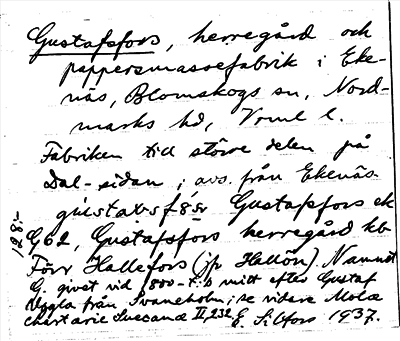 Gustafsfors, herregård och
pappersmassefabrik i Eke-
näs, Blomskogs sn, Nord-
marks hd, Vrml l.
Fabriken till större delen på
Dal-sidan; avs. från Ekenäs
gu̇stavsfȯ̇rs Gustafsfors ek
G62, Gustafsfors herregård kb
Förr Hallefors (jfr Hallön). Namnet
G. givet vid 1800-t:s mitt efter Gustaf
Uggla från Svaneholm; se vidare Molæ
chartarie Suecanæ II, 232 E. Sibfors 1937.
128:-